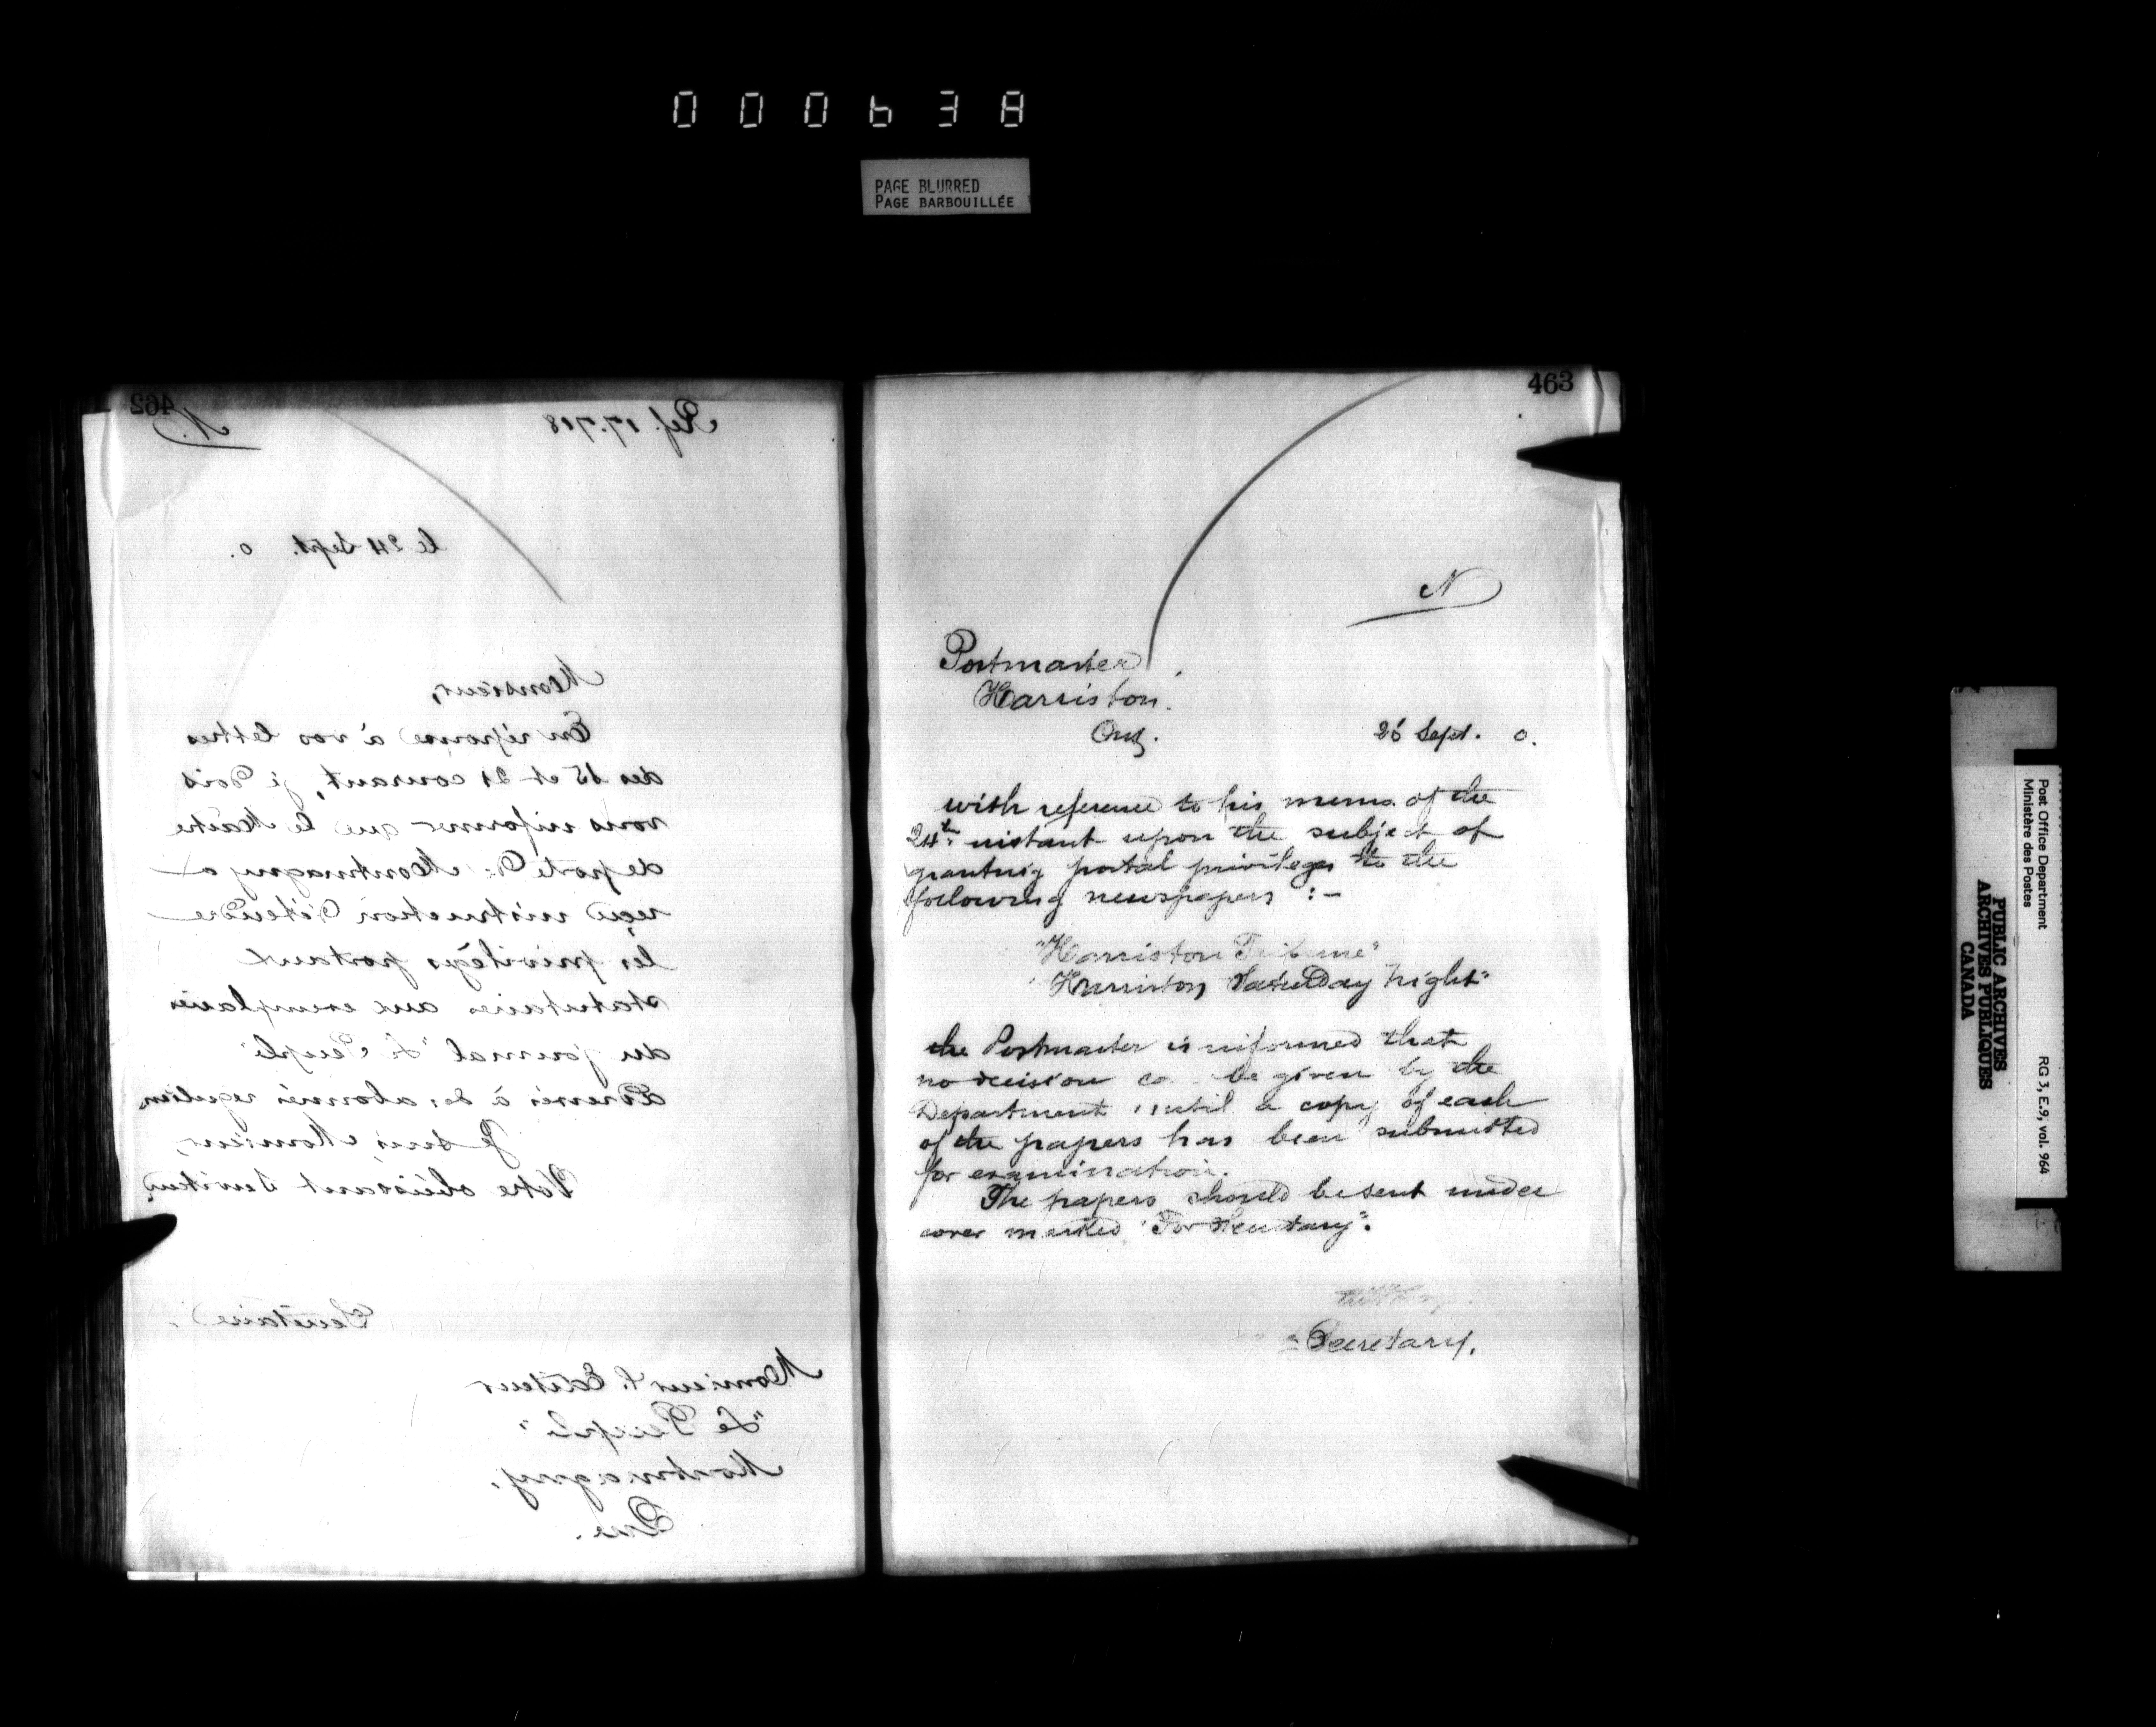 000638
PAGE BLURRED
PAGE BARBOUILLÉE
462
N.
Ref. 17.718
le 24 Sept. 0.
Monsieur,
En réponse à vos lettres
des 15 et 21 courant, je dois
vous informer que le Maître
de poste de Montmagny a
reçu instruction d'étendre
les privilèges postaux
statutaires aux exemplaires
du journal "Le Peuple"
adressés à des abonnés reguliers
Je suis, Monsieur,
Votre obéissant Serviteur,
Secrétaire
Monsieur l'Editeur
"Le Peuple"
Montmagny,
Que.
463
N
Postmaster,
Harriston.
Ont.
26 Sept. 0.
with reference to his memo. of the
24th instant upon the subject of
granting postal privileges to the
following newspapers :-
"Harriston Tribune"
"Harriston Saturday Night"
the Postmaster is informed that
no decision ca be given by the
Department until a copy of each
of the papers has been submitted
for examination.
The papers should be sent under
cover marked "For Secretary".
Secretary.
Post Office Department
Ministère des Postes
RG 3, E.9, vol. 964
PUBLIC ARCHIVES
ARCHIVES PUBLIQUES
CANADA